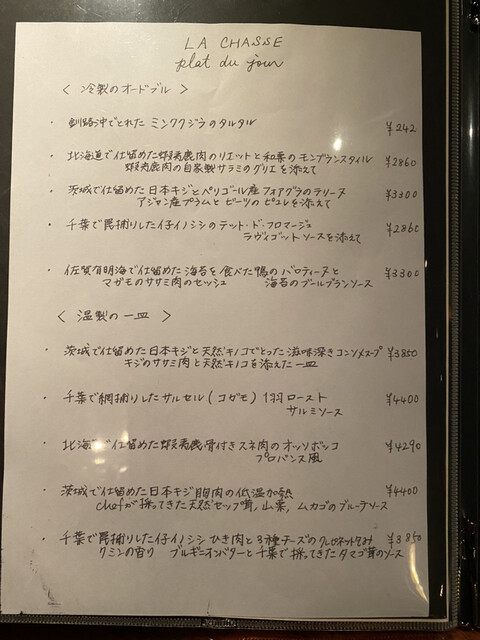 LA CHASSE
plat du jour
< 冷製のオードブル >
・ 釧路沖でとれた ミンククジラのタルタル ¥242
・ 北海道で仕留めた蝦夷鹿肉のリエットと和栗のモンブランスタイル ¥2860
蝦夷鹿肉の自家製サラミのグリエを添えて
・ 茨城で仕留めた日本キジとペリゴール産フォアグラのテリーヌ ¥3300
アジャン産プラムと ビーツの ピュレを添えて
・ 千葉で罠捕りした仔イノシシのテット・ド・フロマージュ ¥2860
ラヴィゴットソースを添えて
・ 佐賀有明海で仕留めた 海苔を食べた鴨の バロティーヌと ¥3300
マガモのササミ肉のセッシュ 海苔のブールブランソース
< 温製の一皿 >
・ 茨城で仕留めた日本キジと天然キノコでとった滋味深きコンソメスープ ¥3850
キジのササミ肉と天然キノコを添えた一皿
・ 千葉で網捕りしたサルセル(コガモ) 1羽ロースト ¥4400
サルミソース
・ 北海道で仕留めた蝦夷鹿骨付きスネ肉のオッソボッコ ¥4290
プロバンス風
・ 茨城で仕留めた日本キジ胸肉の低温加熱 ¥4400
chefが採ってきた天然セップ茸, 山栗, ムカゴのブルーテソース
・ 千葉で罠捕りした仔イノシシ ひき肉と3種チーズのクレピネット包み ¥3850
クミンの香り ブルギニオンバターと千葉で採ってきたタマゴ茸のソース